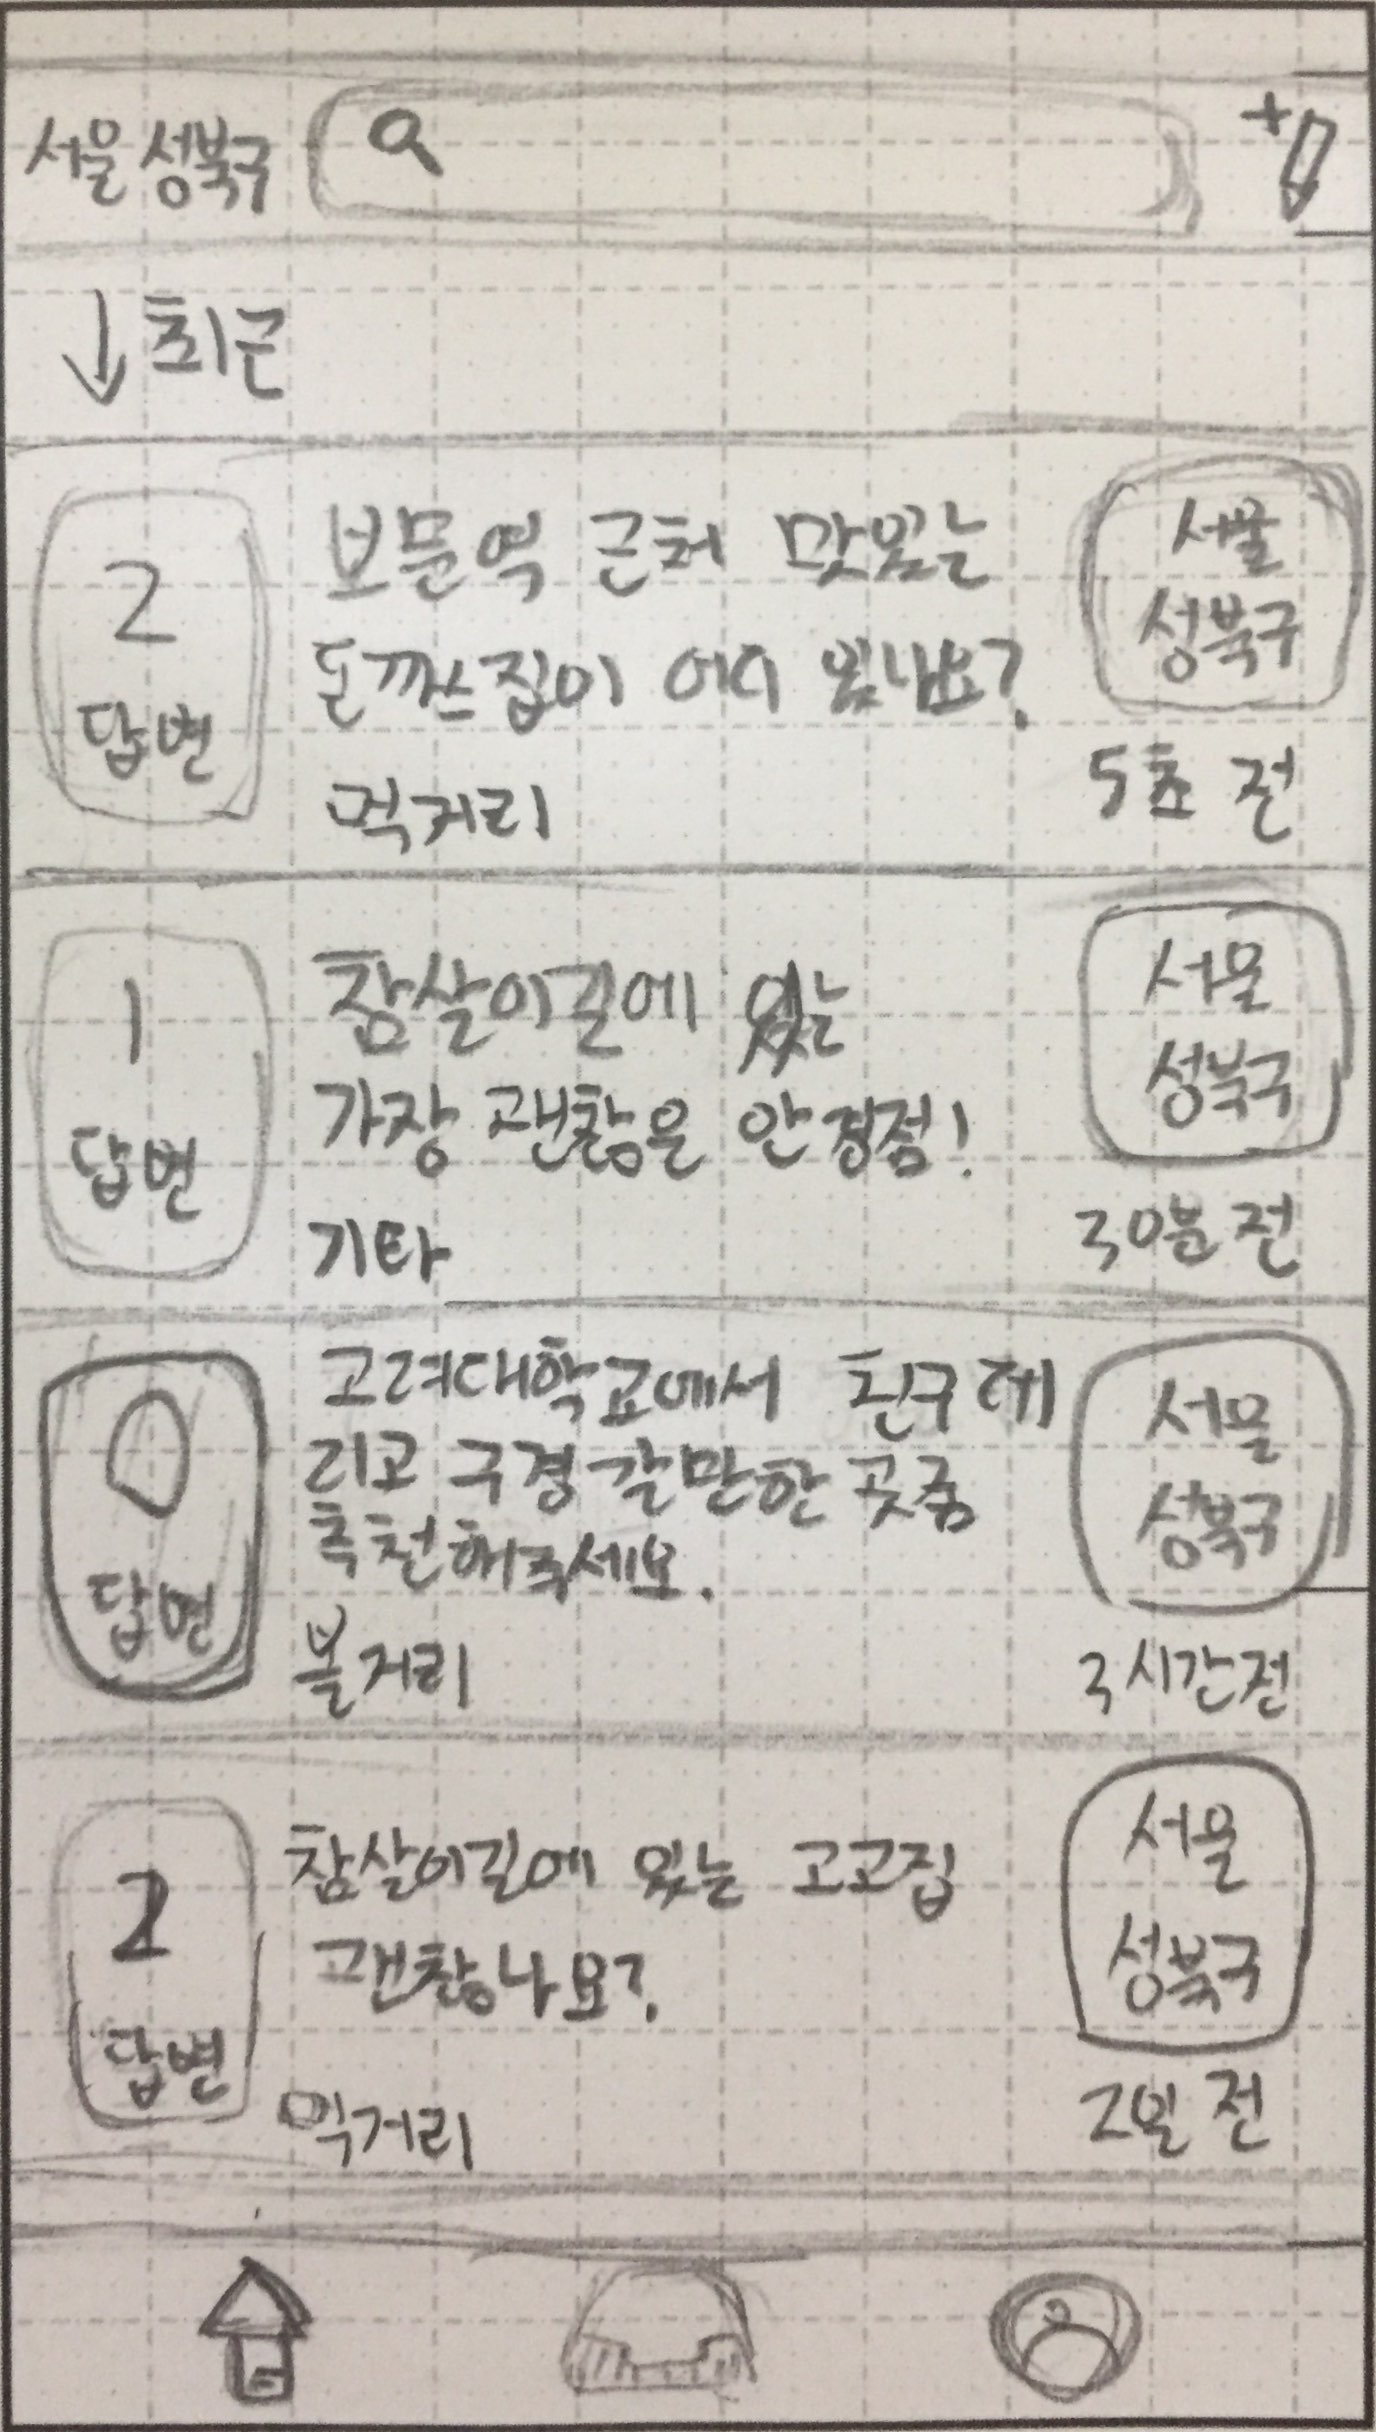 서울 성북구
↓ 최근
2
답변
보문역 근처 맛있는
돈까스집이 어디 있나요?
먹거리
서울
성북구
5초 전
1
답변
참살이길에 있는
가장 괜찮은 안경점!
기타
서울
성북구
30분 전
0
답변
고려대학교에서 친구 데
리고 구경 갈만한 곳좀
추천해주세요.
볼거리
서울
성북구
3시간전
2
답변
참살이길에 있는 고고집
괜찮나요?
먹거리
서울
성북구
2일 전